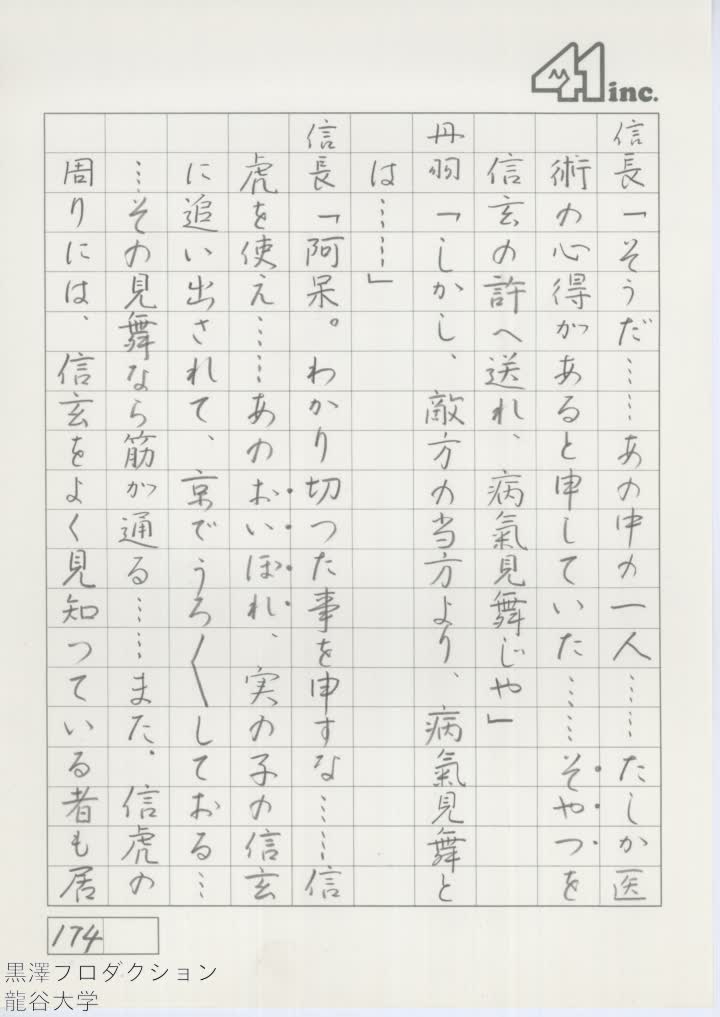 41 inc.
信長「そうだ……あの中の一人……たしか医
術の心得があると申していた……そやつを
信玄の許へ送れ、病氣見舞じや」
丹羽「しかし、敵方の当方より、病氣見舞と
は……」
信長「阿呆。わかり切つた事を申すな……信
虎を使え……あのおいぼれ、実の子の信玄
に追い出されて、京でうろ〱しておる…
…その見舞なら筋が通る……また、信虎の
周りには、信玄をよく見知つている者も居
174
黒澤プロダクション
龍谷大学